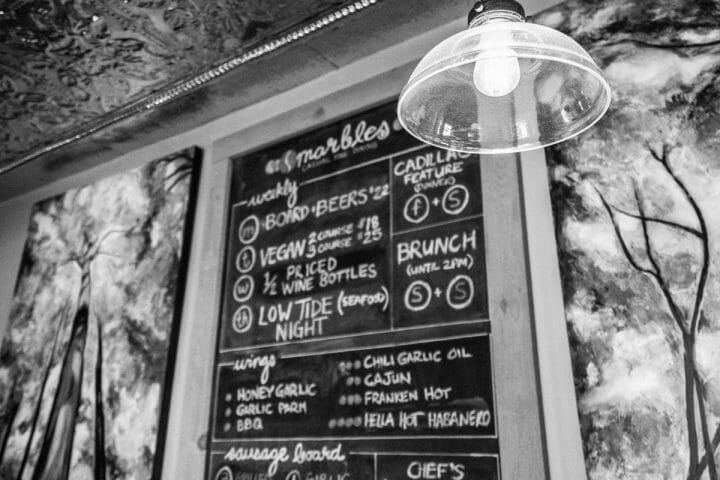 marbles
CASUAL FINE DINING
weekly
m BOARD + BEERS $22
t VEGAN 2 COURSE $18
3 COURSE $25
w 1/2 PRICED
WINE BOTTLES
th LOW TIDE (SEAFOOD)
NIGHT
CADILLAC
FEATURE
(DINNER)
f + S
BRUNCH
(UNTIL 2PM)
S + S
wings
HONEY GARLIC
GARLIC PARM
BBQ
CHILI GARLIC OIL
CAJUN
FRANKEN HOT
HELLA HOT HABANERO
sausage board
GARLIC
CHEF'S